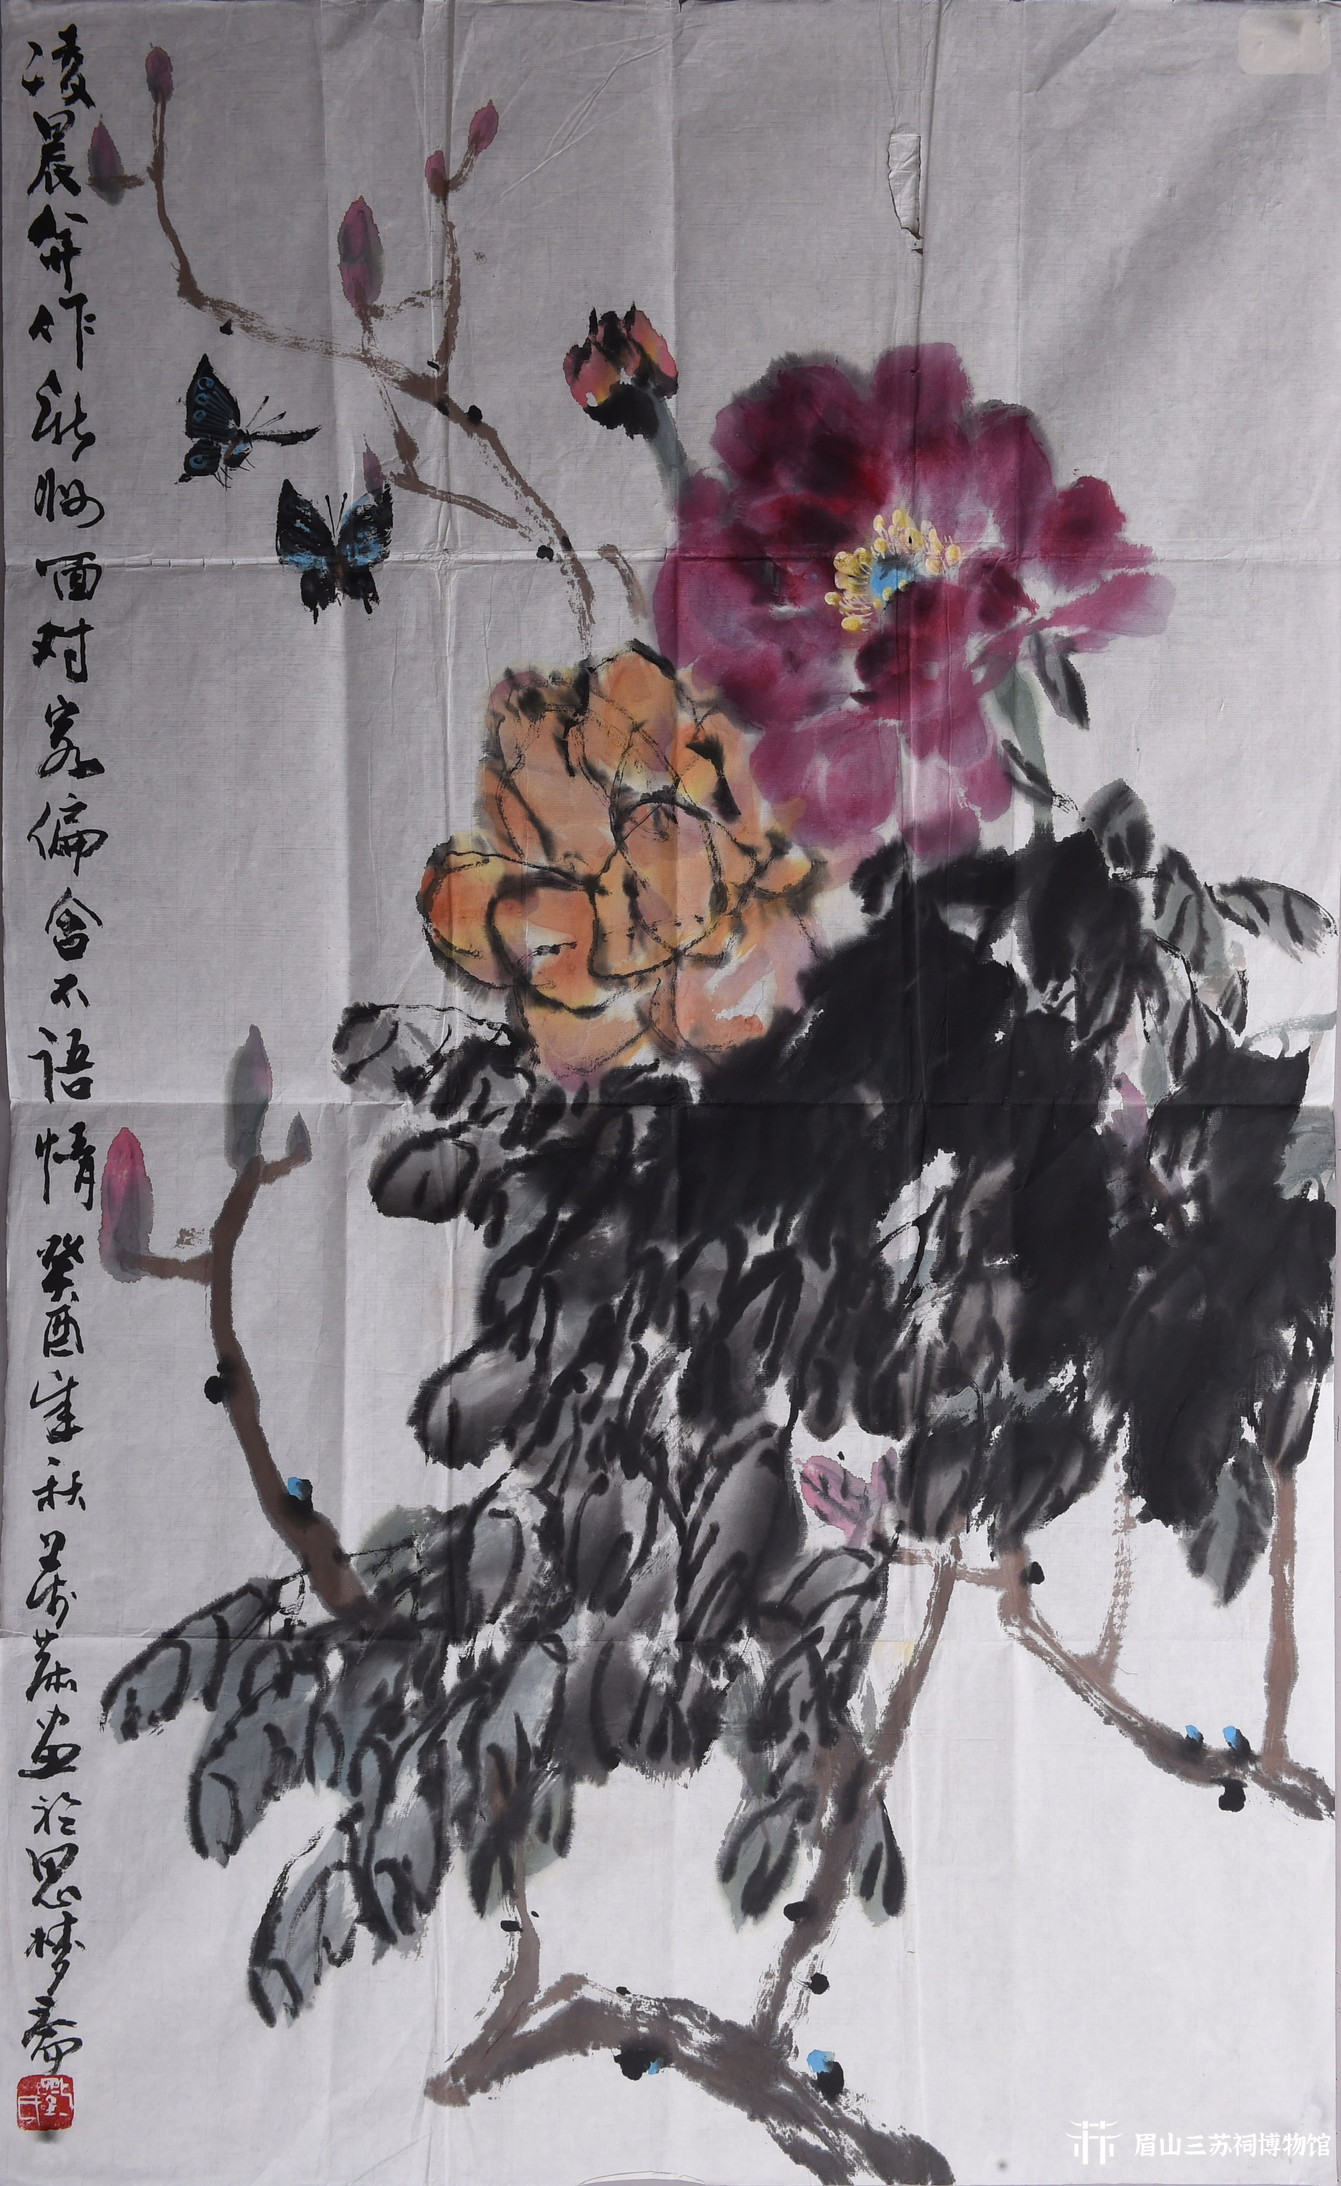 凌晨并作新妆面对客偏含不语情 癸酉年秋 画於思梦斋
眉山三苏祠博物馆